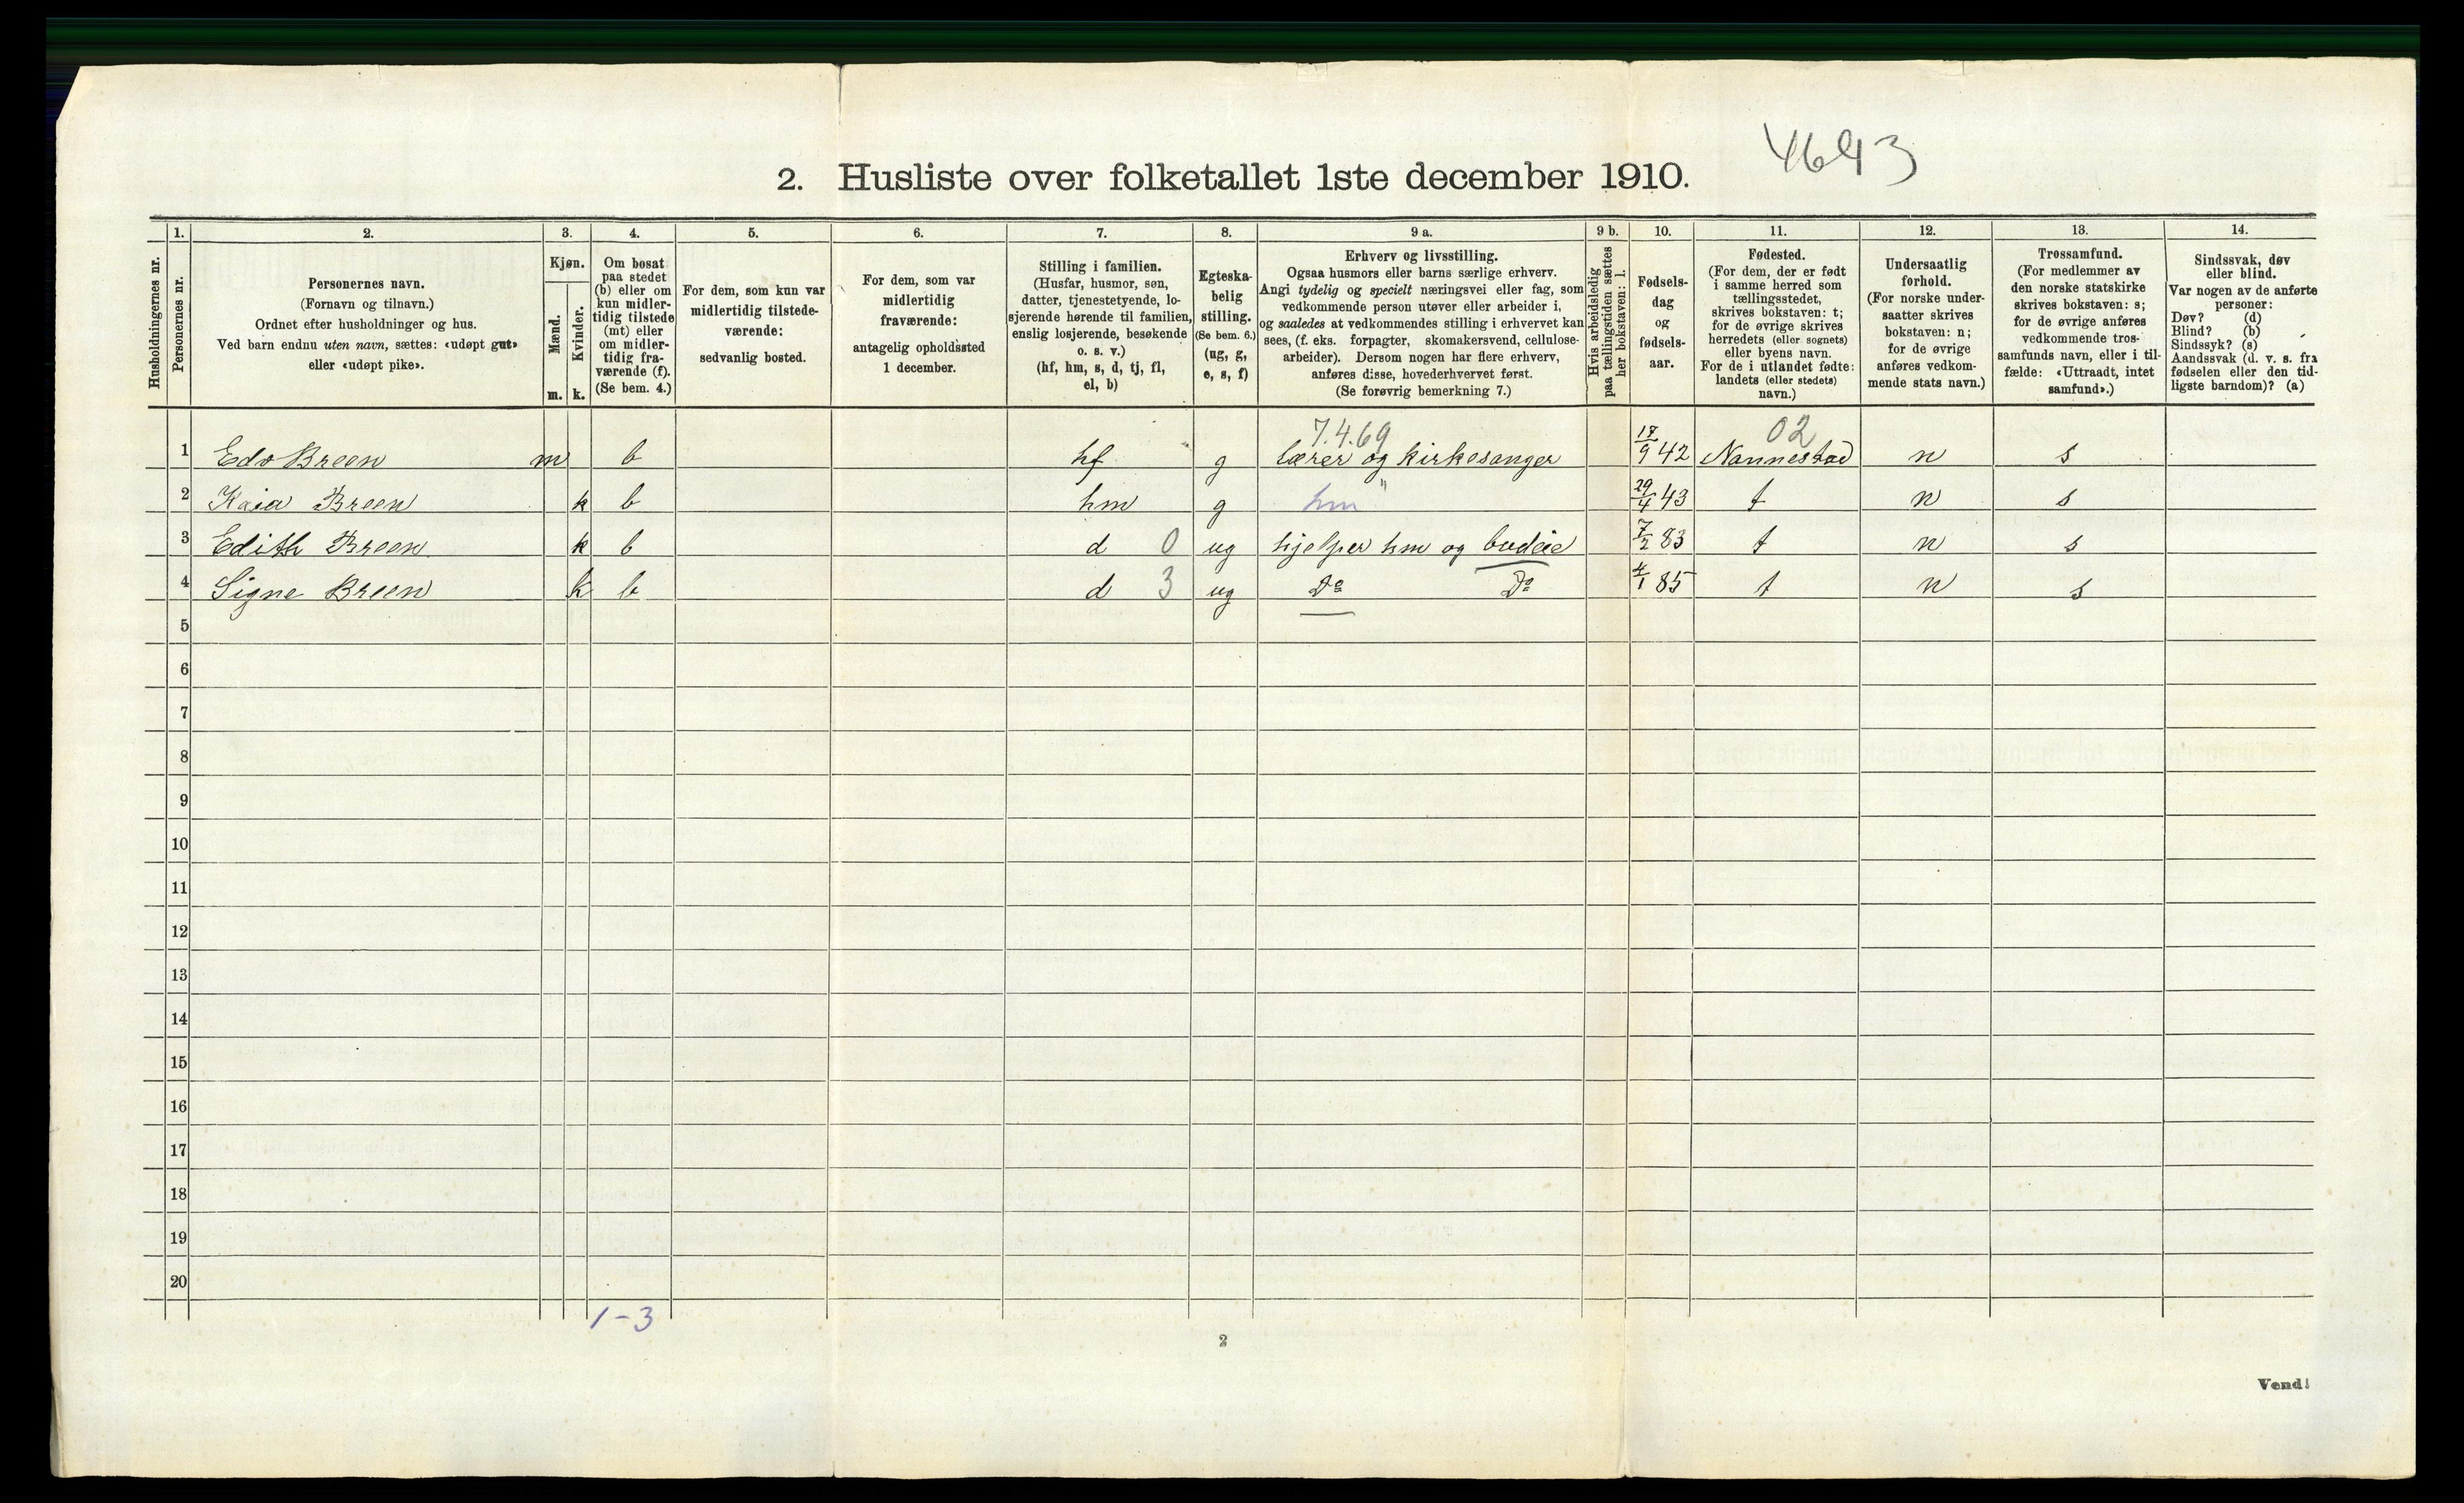 4693
2. Husliste over folketallet 1ste december 1910.
Husholdningernes nr.
1.
Personernes nr.
2.
Personernes navn.
(Fornavn og tilnavn.)
Ordnet efter husholdninger og hus.
Ved barn endnu uten navn, sættes: «udøpt gut»
eller «udøpt pike».
3.
Kjøn.
Mænd.
Kvinder.
m. k.
4.
Om bosat
paa stedet
(b) eller om
kun midler-
tidig tilstede
(mt) eller
om midler-
tidig fra-
værende (f).
(Se bem. 4.)
5.
For dem, som kun var
midlertidig tilstede-
værende:
sedvanlig bosted.
6.
For dem, som var
midlertidig
fraværende:
antagelig opholdssted
1 december.
7.
Stilling i familien.
(Husfar, husmor, søn,
datter, tjenestetyende, lo-
sjerende hørende til familien,
enslig losjerende, besøkende
o. s. v.)
(hf, hm, s, d, tj, fl,
el, b)
8.
Egteska-
belig
stilling.
(Se bem. 6.)
(ug, g,
e, s, f)
9 a.
Erhverv og livsstilling.
Ogsaa husmors eller barns særlige erhverv.
Angi tydelig og specielt næringsvei eller fag, som
vedkommende person utøver eller arbeider i,
og saaledes at vedkommendes stilling i erhvervet kan
sees, (f. eks. forpagter, skomakersvend, cellulose-
arbeider). Dersom nogen har flere erhverv,
anføres disse, hovederhvervet først.
(Se forøvrig bemerkning 7.)
9 b.
Hvis arbeidsledig
paa tællingstiden sættes
her bokstaven: l.
10.
Fødsels-
dag
og
fødsels-
aar.
11.
Fødested.
(For dem, der er født
i samme herred som
tællingsstedet,
skrives bokstaven: t;
for de øvrige skrives
herredets (eller sognets)
eller byens navn.
For de i utlandet fødte:
landets (eller stedets)
navn.)
12.
Undersaatlig
forhold.
(For norske under-
saatter skrives
bokstaven: n;
for de øvrige
anføres vedkom-
mende stats navn.)
13.
Trossamfund.
(For medlemmer av
den norske statskirke
skrives bokstaven: s;
for de øvrige anføres
vedkommende tros-
samfunds navn, eller i til-
fælde: «Uttraadt, intet
samfund».)
14.
Sindssvak, døv
eller blind.
Var nogen av de anførte
personer:
Døv? (d)
Blind? (b)
Sindssyk? (s)
Aandssvak (d. v. s. fra
fødselen eller den tid-
ligste barndom)? (a)
7.4.69 02
1 Edv Breen m b hf g lærer og kirkesanger 17/9 42 Nannestad n s
2 Kaia Breen k b hm g hm " 29/4 43 t n s
3 Edith Breen k b d 0 ug hjelper hm og budeie 7/2 83 t n s
4 Signe Breen k b d 3 ug Do Do 4/1 85 t n s
5
6
7
8
9
10
11
12
13
14
15
16
17
18
19
20
1-3
2
Vend!